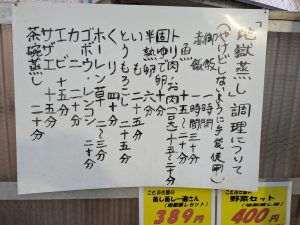 「地獄蒸し」調理について
(やけどしないように手袋使用)
御飯 一時間
赤飯 一時間三十分
魚 十五〜二十分
トリ肉
お肉
十五〜三十分
固ゆで卵 十分
半熟卵 六分
いも 二十五分
とうもろこし 二十五分
くり 四十分
ホーレン草 二〜三分
ゴボウ・レンコン 二十分
カニ 二十分
エビ 十五分
サザエ 十五分
茶碗蒸し 二十分
蒸し蒸し一週さん
389円
野菜セット
400円